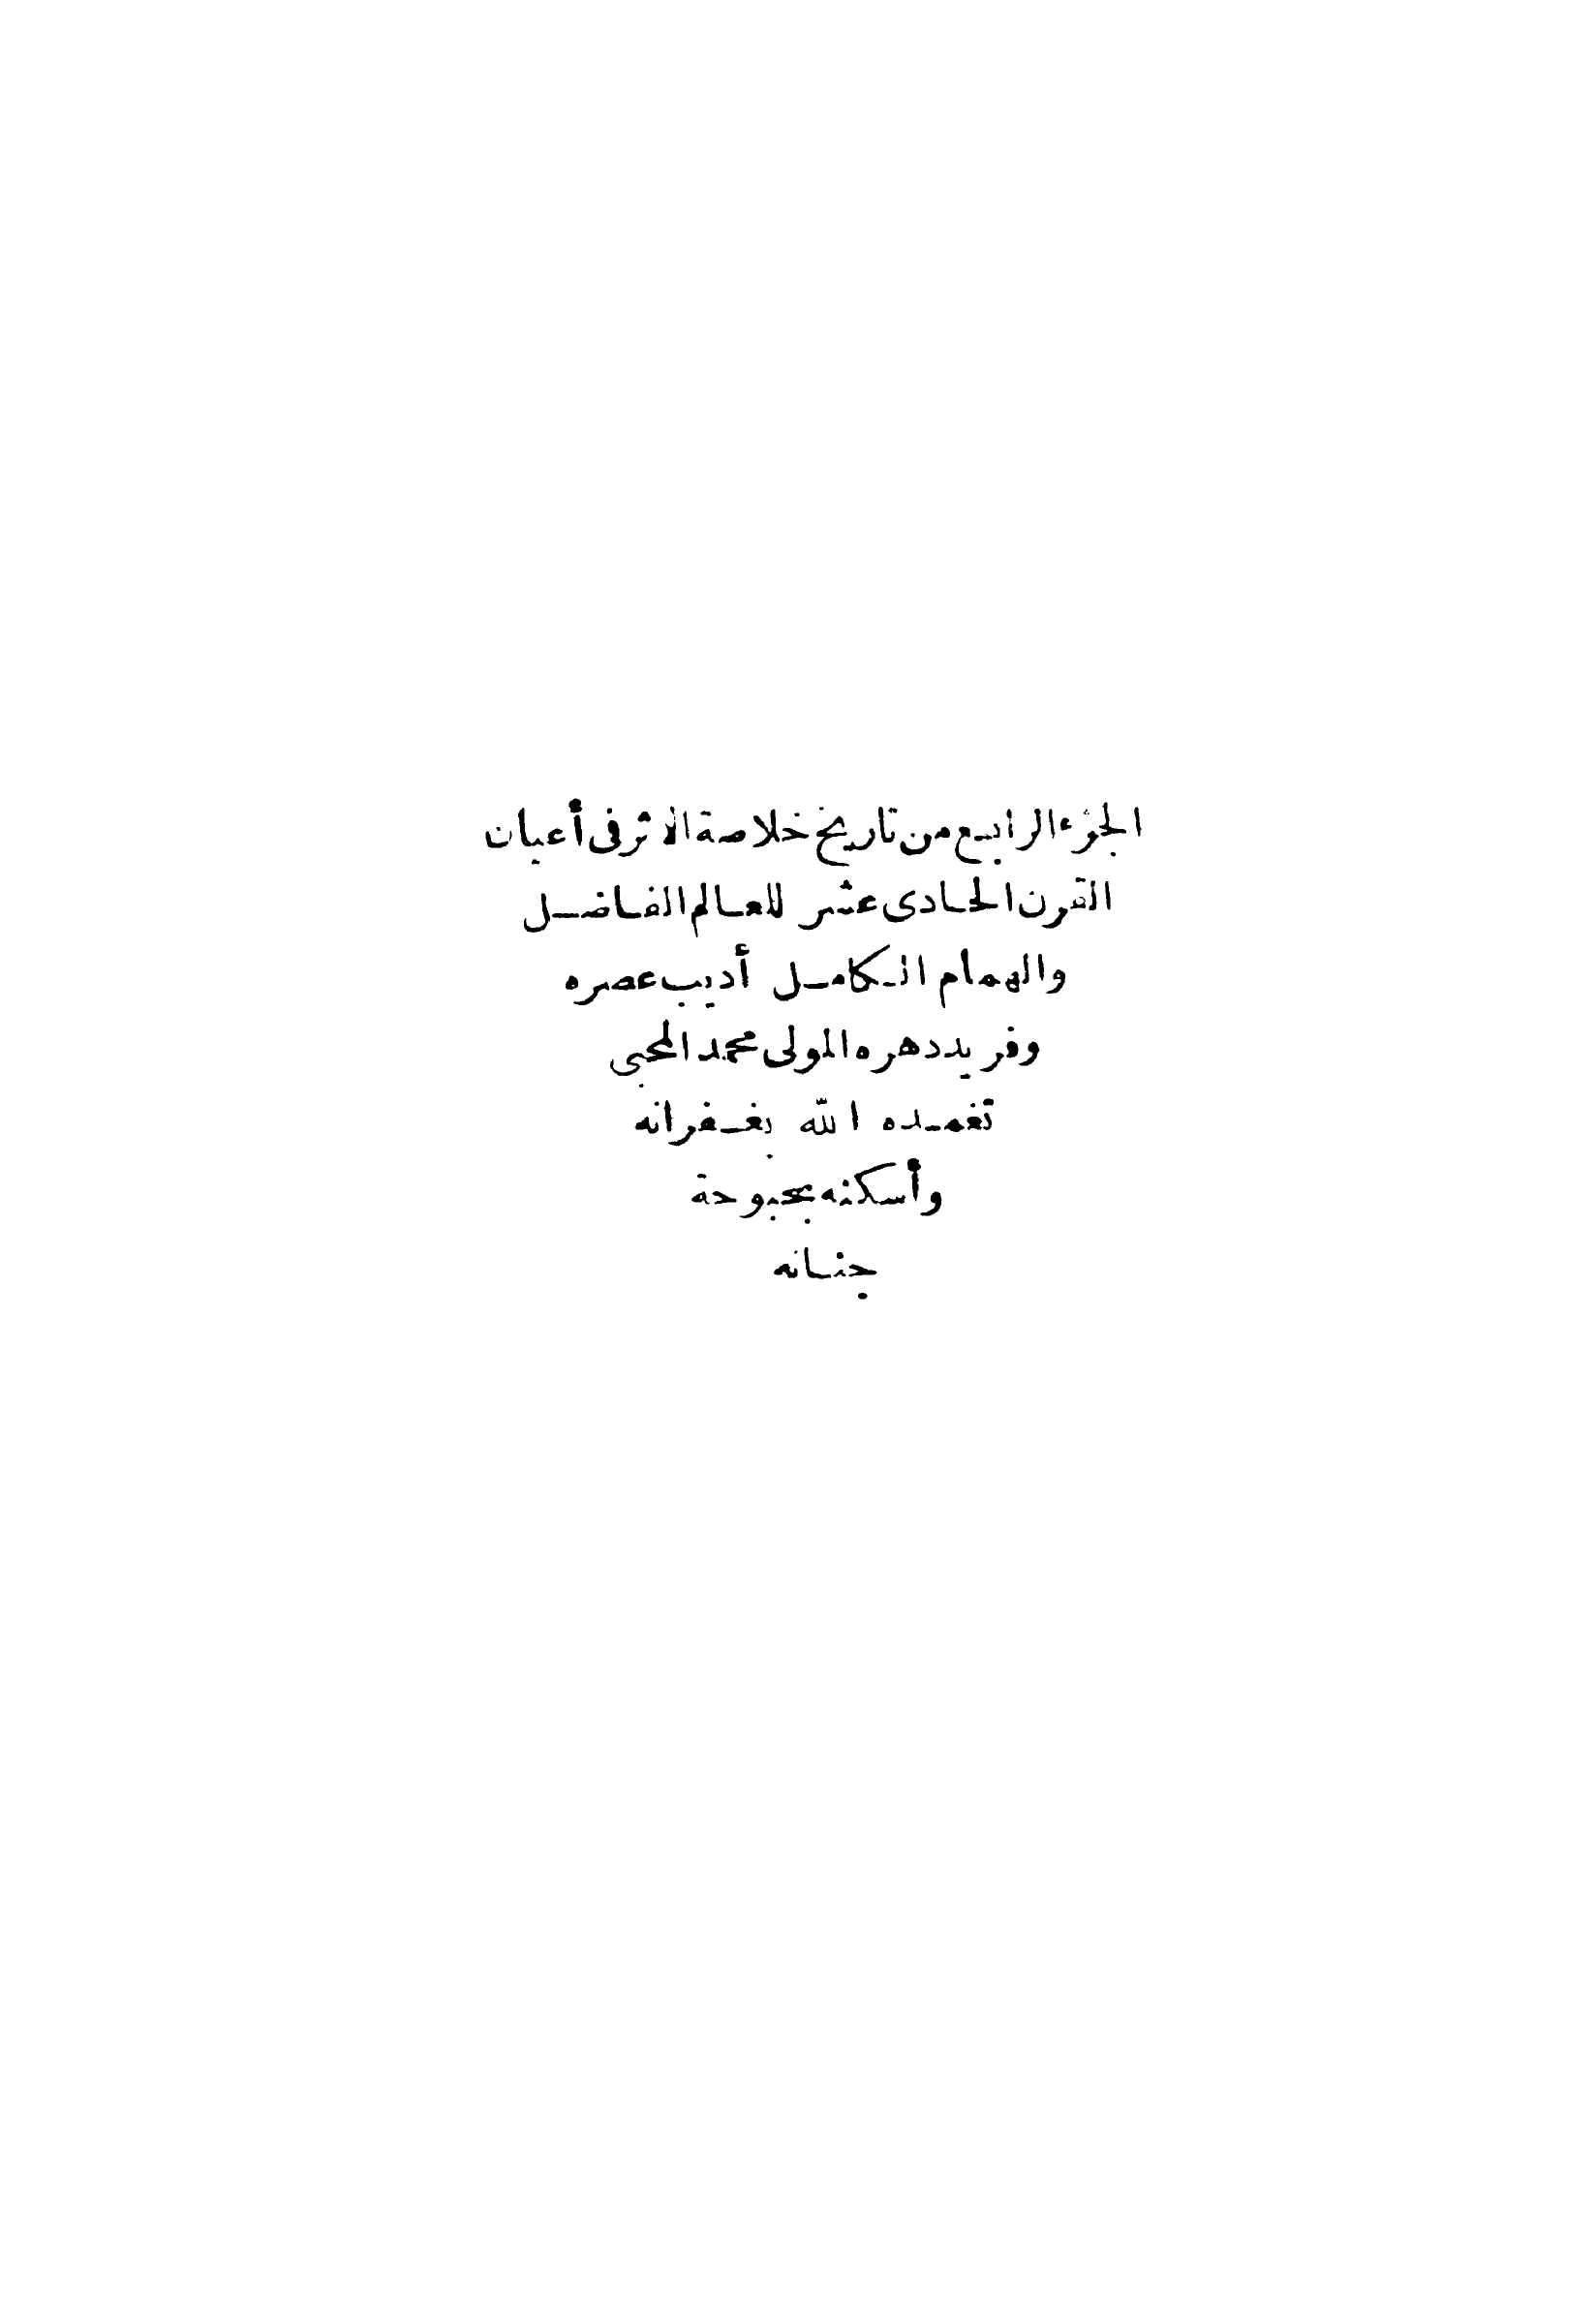 الجزء الرابع من تاريخ خلاصة الاثر فى أعيان
القرن الحادى عشر للعالم الفاضل
والهمام الكامل أديب عصره
وفريد دهره المولى محمد المحبى
تغمده الله بغفرانه
وأسكنه بحبوحة
جنانه